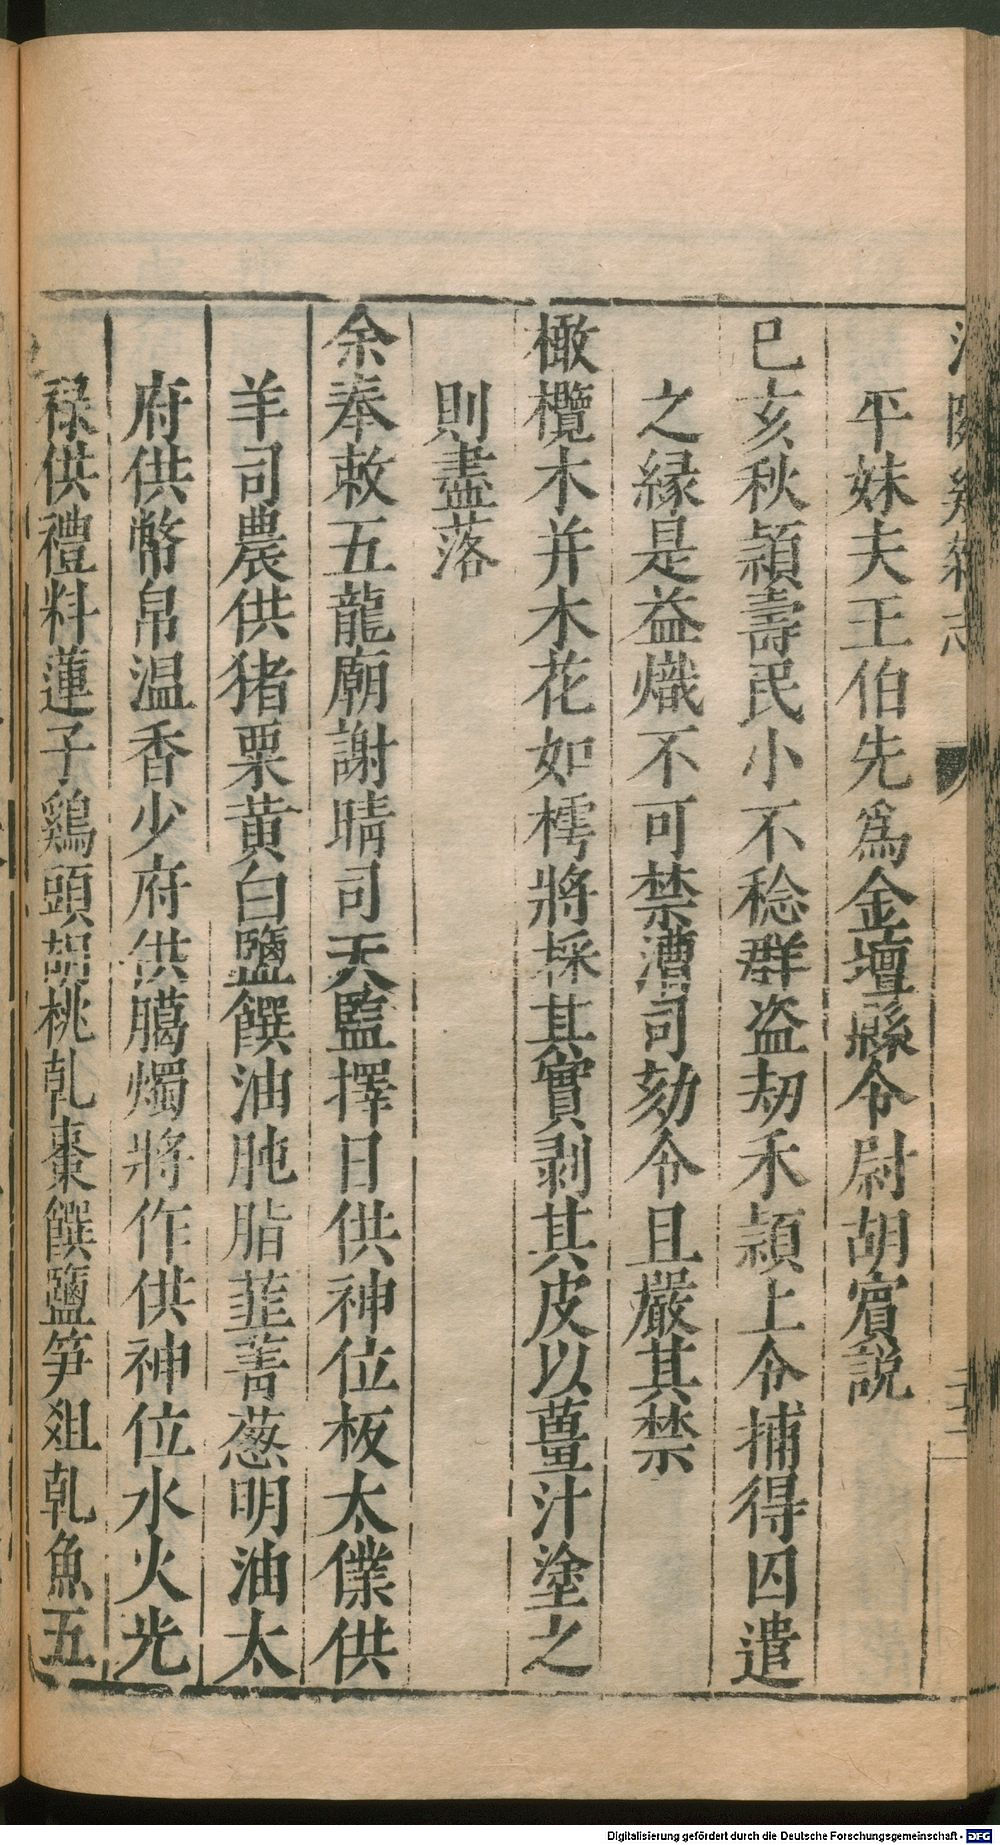 平妹夫王伯先為金壇縣令尉胡賓説
巳亥秋頴壽民小不稔群盗刼禾頴上令捕得囚遣
之縁是益熾不可禁漕司劾令且嚴其禁
橄欖木并木花如樗將採其實剥其皮以薑汁塗之
則盡落
余奉敕五龍廟謝晴司天監擇日供神位板太僕供
羊司農供猪栗黄白鹽饌油肫脂韮菁葱明油太
府供幣帛温香少府供臈燭將作供神位水火光
禄供禮料蓮子鷄頭胡桃乹棗饌鹽笋爼乹魚五
Digitalisierung gefördert durch die Deutsche Forschungsgemeinschaft - DFG